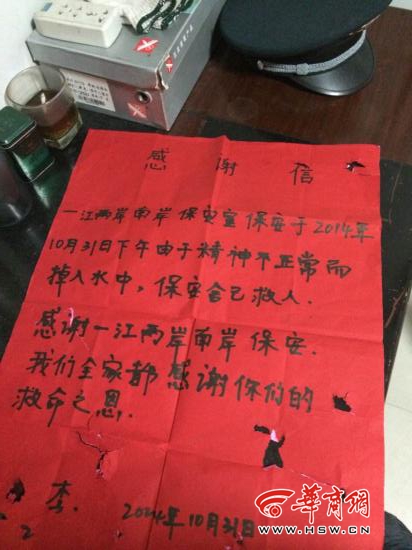 感谢信
一江两岸南岸保安室保安于2014年
10月31日下午由于精神不正常而
掉入水中，保安舍己救人.
感谢一江两岸南岸保安.
我们全家都感谢你们的
救命之恩.
李.
2014年10月31日
2
华商网
www.HSW.cn